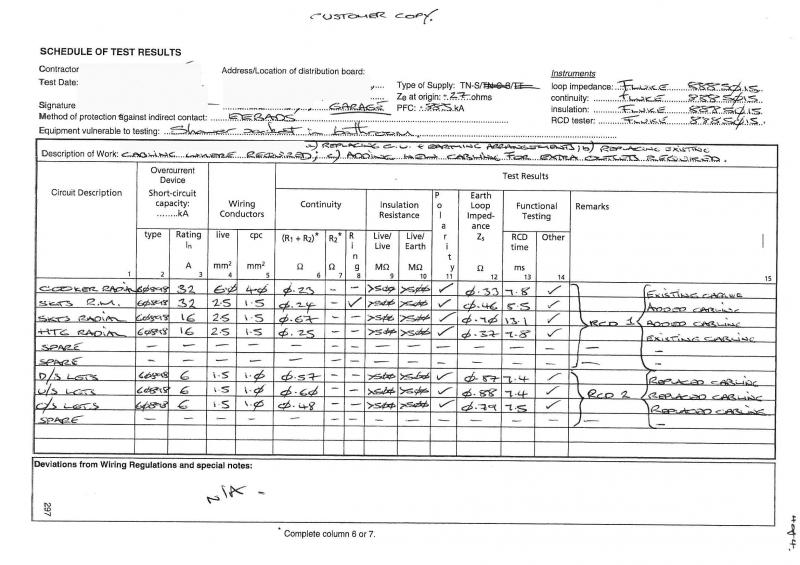 CUSTOMER COPY.
SCHEDULE OF TEST RESULTS
Contractor
Test Date:
Address/Location of distribution board:
Type of Supply: TN-S/TN-C-S/TT
Ze at origin: .27 ohms
PFC: .885 kA
Instruments
loop impedance: FLUKE 8885Ø/15
continuity: FLUKE 8885Ø/15
insulation: FLUKE 8885Ø/15
RCD tester: FLUKE 8885Ø/15
Signature GARAGE
Method of protection against indirect contact: EEBADS
Equipment vulnerable to testing: Shaver socket in bathroom,
a) REPLACING C.U. + EARTHING ARRANGEMENTS; b) REPLACING EXISTING
Description of Work: CABLING WHERE REQUIRED; c) ADDING NEW CABLING FOR EXTRA OUTLETS REQUIRED.
Circuit Description
Overcurrent Device
Short-circuit capacity: ........kA
Wiring Conductors
Test Results
Continuity
Insulation Resistance
Polarity
Earth Loop Impedance Zs
Functional Testing
Remarks
type Rating In A live mm² cpc mm² (R1 + R2)* Ω R2* Ω Ring Live/Live MΩ Live/Earth MΩ Ω RCD time ms Other
1 2 3 4 5 6 7 8 9 10 11 12 13 14 15
COOKER RADIAL 32 6.Ø 4.Ø Ø.23 – – ✓ Ø.33 7.8 ✓ EXISTING CABLING
SKTS R.M. 32 2.5 1.5 Ø.24 – ✓ ✓ Ø.46 5.5 ✓ ADDED CABLING
SKTS RADIAL 16 2.5 1.5 Ø.67 – – ✓ Ø.90 13.1 ✓ RCD 1 ADDED CABLING
HTG RADIAL 16 2.5 1.5 Ø.25 – – ✓ Ø.37 7.8 ✓ EXISTING CABLING
SPARE – – – – – – – – – – – – – –
SPARE – – – – – – – – – – – – – –
D/S LGTS 6 1.5 1.Ø Ø.57 – – ✓ Ø.87 7.4 ✓ REPLACED CABLING
U/S LGTS 6 1.5 1.Ø Ø.60 – – ✓ Ø.88 7.4 ✓ RCD 2 REPLACED CABLING
C/S LGTS 6 1.5 1.Ø Ø.48 – – ✓ Ø.79 7.5 ✓ REPLACED CABLING
SPARE – – – – – – – – – – – – – –
Deviations from Wiring Regulations and special notes:
N/A –
297
* Complete column 6 or 7.
4 of 4.